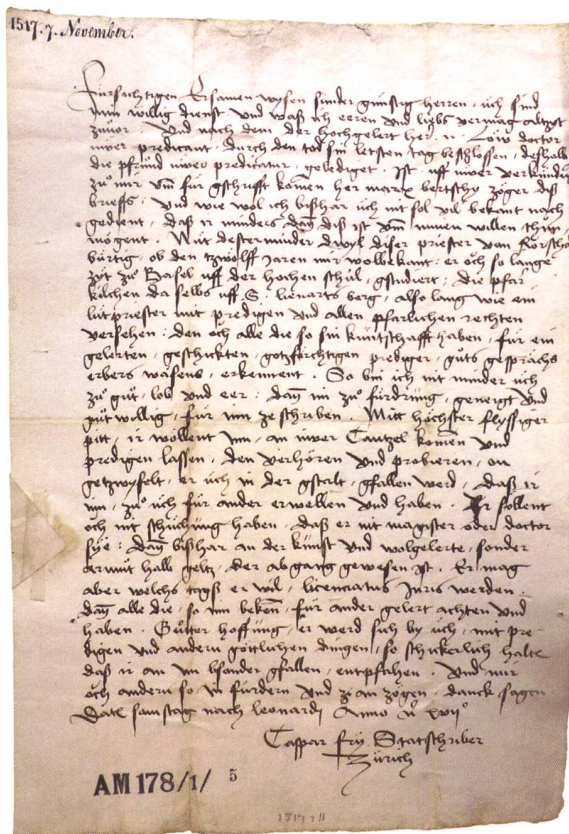 1517. 7. November.
Fürsichtigen Ersamen wysen sunder günstig herren, üch sind
min willig dienst und waß ich eeren und liebs vermag altzit
zuvor. Und nach dem der hochgelert her n. Löw doctor
üwer predicant, durch den tod sin letsten tag beschlossen, deßhalb
die pfrund üwer predicatur, gelediget. Ist uff üwer verkünden
zu mir um für gschrifft komen her marx bertschy zöger diß
brieffs, und wie wol ich bißhar üch nit sol vil bekant noch
gedient, daß ir minders dan diß ist um minen willen thün
mögent. Nüt destermünder diewyl diser priester von Rorscha
bürtig, ob den tzwölff Jaren mir wolbekant, er och so lange
zyt zu Basel uff der hochen schul, gstudiert, die pfar
kilchen da selbs uff S. lienarts berg, also lang wie ein
lütpriester mit predigen und allen pfarlichen rechten
versehen, den och alle die so sin küntschafft haben, für ein
gelerten, geschickten, gotzförchtigen prediger, guts gesprächs
erbers wäsens, erkennent. So bin ich nit minder üch
zu gut, lob und eer, dan im zu fürdrung, geneigt und
gutwillig, für inn ze schriben. Mitt höchster flyssiger
pitt, ir wollent inn, an üwer Cantzel komen und
predigen lassen, den verhören und probieren, on
getzwyfelt, er üch in der gstalt, gfallen werd, daß ir
inn, zu üch für ander erwellen und haben. Ir sollent
och nit schüchung haben, daß er nit magister oder doctor
sye, dan bißhar an der kunst und wolgelerte, sonder
armut halb gelts, der abgang gewesen ist. Er mag
aber welchs tags er wil, licenciatus Juris werden.
dan alle die, so inn bekant, für ander gelert achten und
haben. Gutter hoffnung, er werd sich by üch, mit pre-
digen und andern götlichen dingen, so schickerlich halte
daß ir an im bsonder gfallen, entpfachen. Und mir
och andern so in fürdern und zu an zögen, danck sagen
Datum samstag nach leonardi Anno xvii
Caspar Fry Statschriber
Zürich
AM 178/1/ 5
1517 7/11